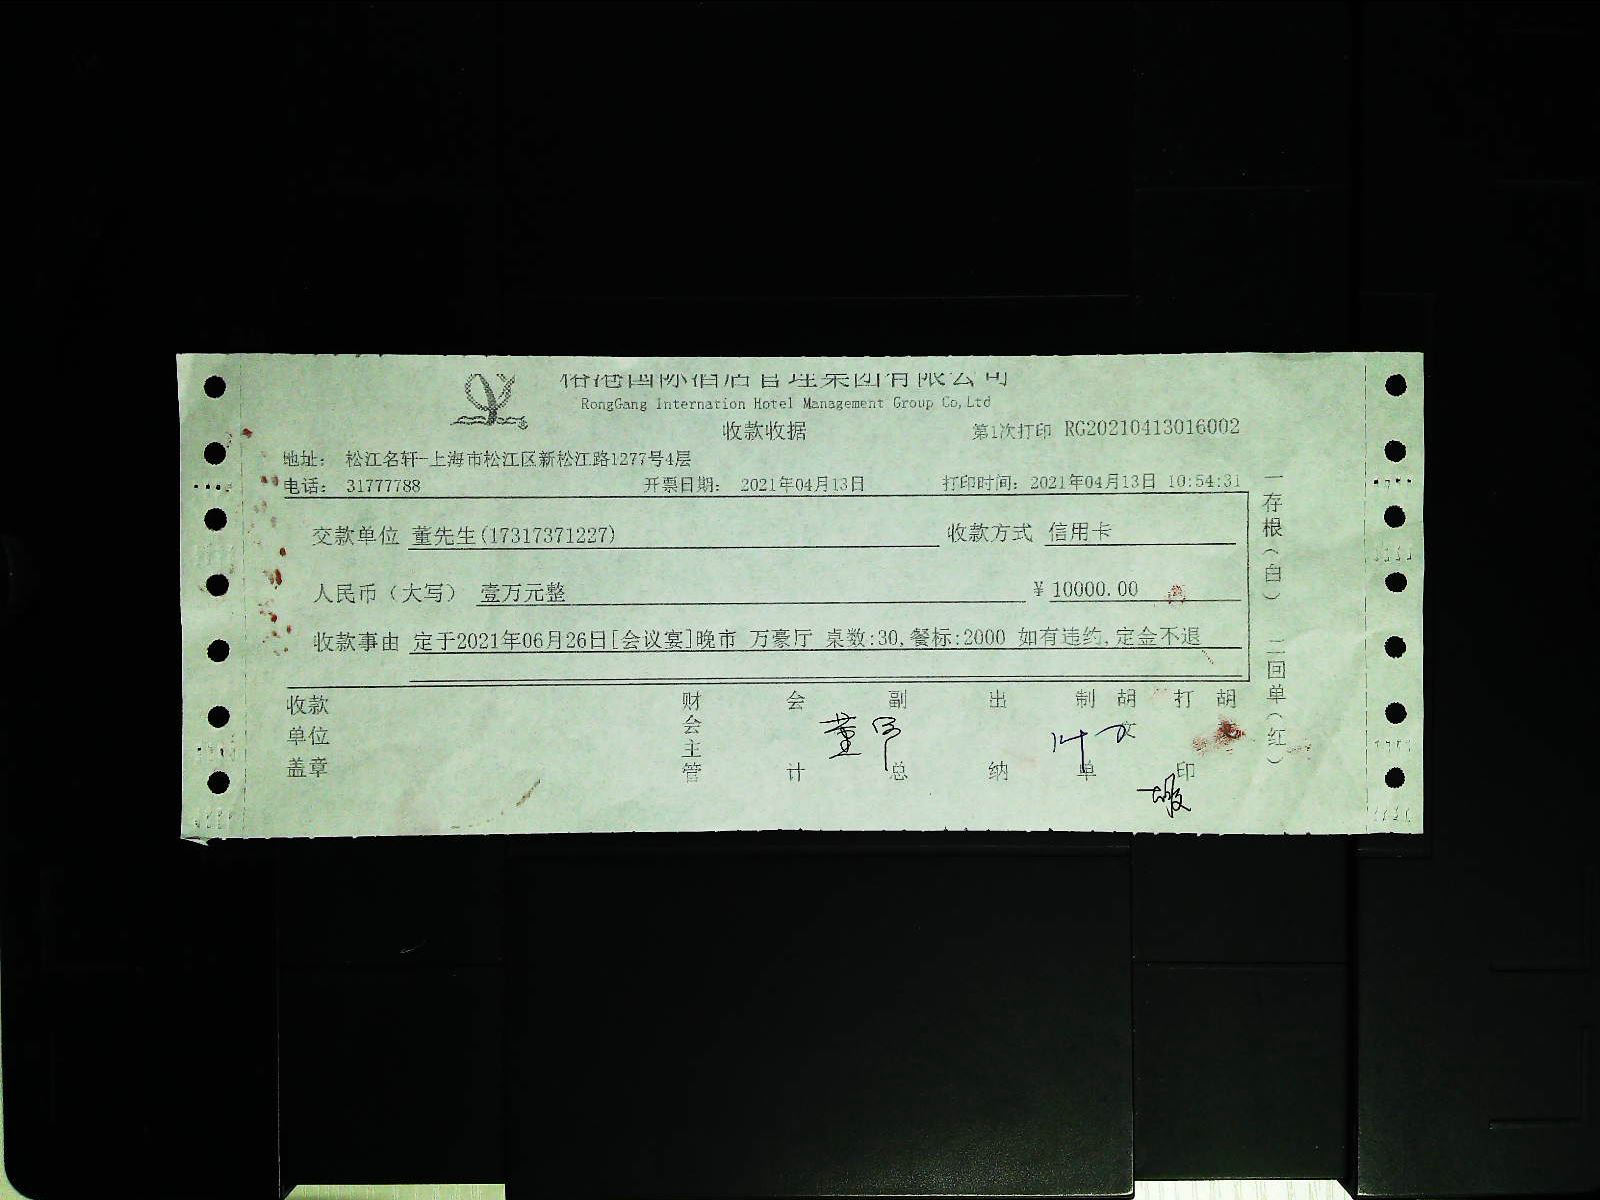 榕港国际酒店管理集团有限公司
RongGang Internation Hotel Management Group Co,Ltd
收款收据
第1次打印 RG20210413016002
地址： 松江名轩-上海市松江区新松江路1277号4层
电话： 31777788 开票日期： 2021年04月13日 打印时间：2021年04月13日 10:54:31
交款单位 董先生(17317371227) 收款方式 信用卡
人民币（大写） 壹万元整 ￥10000.00
收款事由 定于2021年06月26日[会议宴]晚市 万豪厅 桌数:30,餐标:2000 如有违约,定金不退
收款单位盖章 财会主管 会计 副总 出纳 制单 胡 打印 胡
一存根（白） 二回单（红）